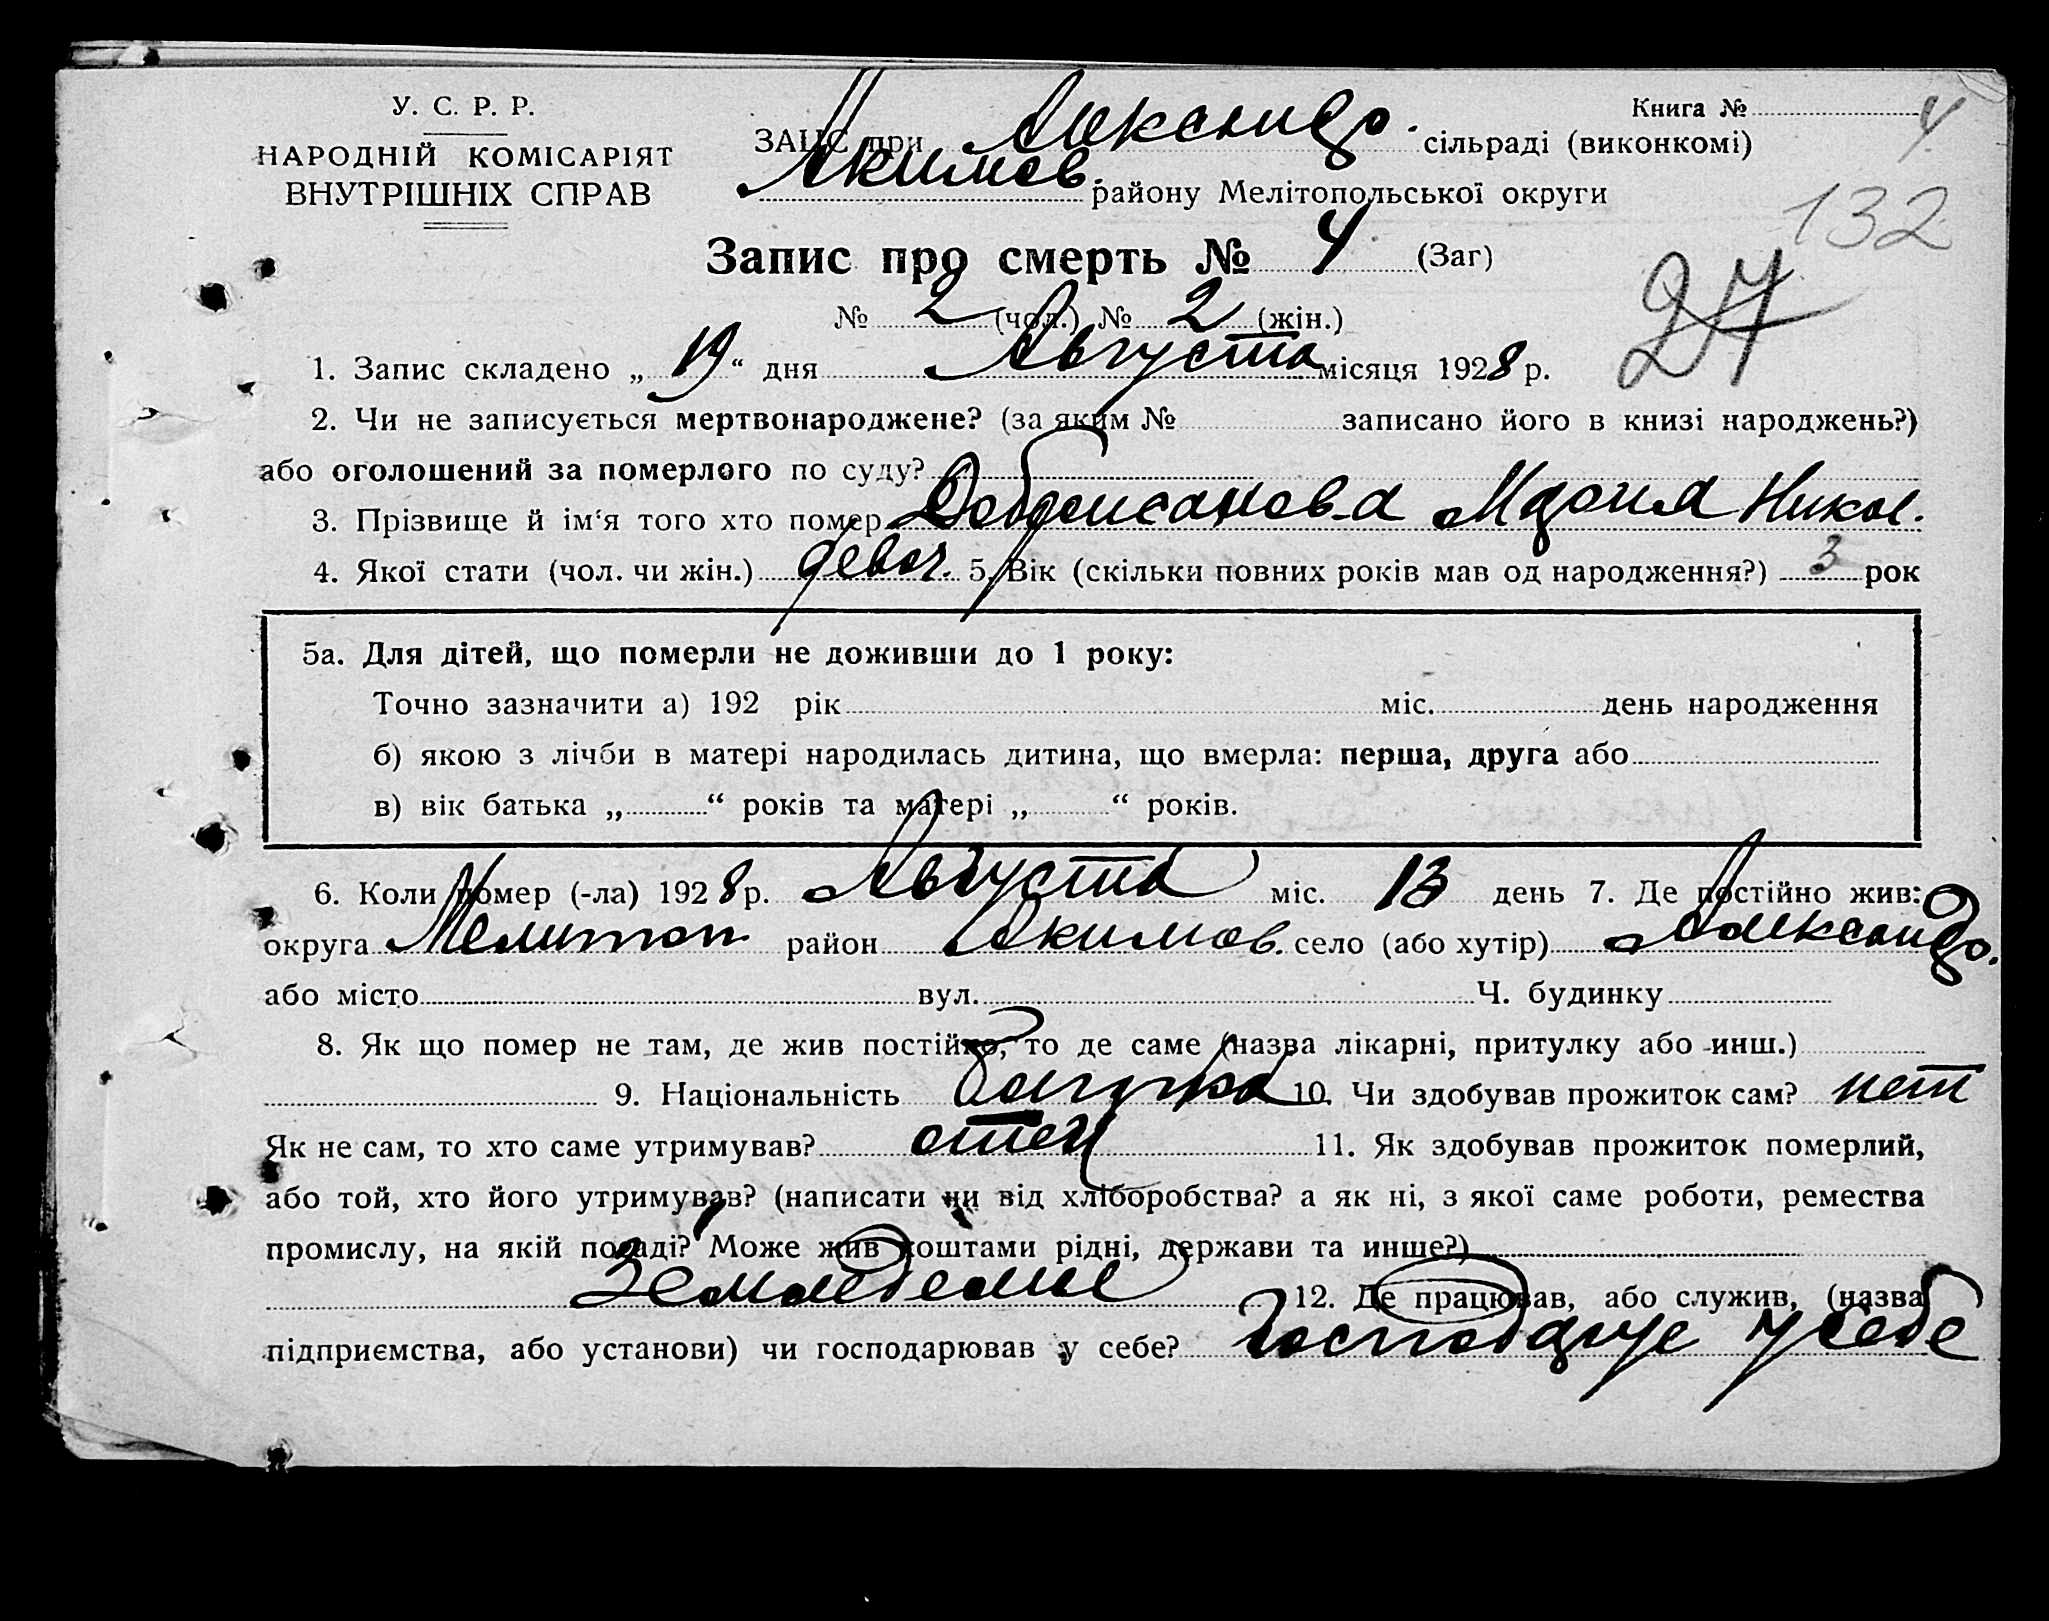 У. С. Р. Р.
НАРОДНІЙ КОМІСАРІЯТ
ВНУТРІШНІХ СПРАВ
Книга №
4
ЗАЦС при Александр. сільраді (виконкомі)
Акимов. району Мелітопольської округи
132
Запис про смерть № 4 (Заг)
27
№ 2 (чол.) № 2 (жін.)
1. Запис складено „ 19 “ дня Августа місяця 1928 р.
2. Чи не записується мертвонароджене? (за яким № записано його в книзі народжень?)
або оголошений за померлого по суду?
3. Прізвище й ім‘я того хто помер Мария Никол.
4. Якої стати (чол. чи жін.) девоч. 5. Вік (скільки повних років мав од народження?) 3 рок
5а. Для дітей, що померли не доживши до 1 року:
Точно зазначити а) 192 рік міс. день народження
б) якою з лічби в матері народилась дитина, що вмерла: перша, друга або
в) вік батька „ “ років та матері „ “ років.
6. Коли помер (-ла) 1928 р. Августа міс. 13 день 7. Де постійно жив:
округа Мелитоп район Акимов. село (або хутір) Александр.
або місто вул. Ч. будинку
8. Як що помер не там, де жив постійно, то де саме (назва лікарні, притулку або инш.)
9. Національність Болгарка 10. Чи здобував прожиток сам? нет
Як не сам, то хто саме утримував? отец 11. Як здобував прожиток померлий,
або той, хто його утримував? (написати чи від хліборобства? а як ні, з якої саме роботи, ремества
промислу, на якій посаді? Може жив коштами рідні, держави та инше?)
Земледелие 12. Де працював, або служив, (назва
підприємства, або установи) чи господарював у себе? Господарує у себе